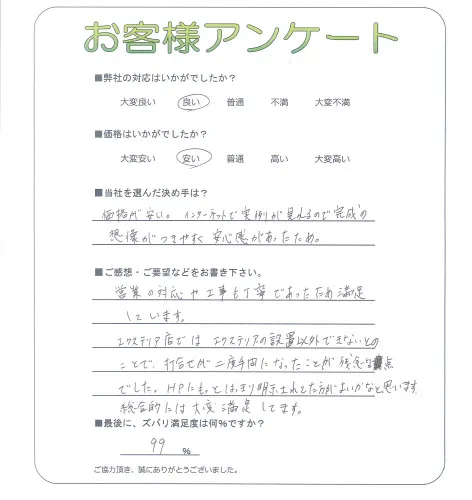 お客様アンケート
■弊社の対応はいかがでしたか？
大変良い 良い 普通 不満 大変不満
■価格はいかがでしたか？
大変安い 安い 普通 高い 大変高い
■当社を選んだ決め手は？
価格が安い。インターネットで実例が見れるので完成の
想像がつきやすく安心感があったため。
■ご感想・ご要望などをお書き下さい。
営業の対応や工事も丁寧であったため満足
しています。
エクステリア店ではエクステリアの設置以外できないとの
ことで、打合せが二度手間になったことが残念な点
でした。HPにもっとはっきり明示されてた方がよいかなと思います。
総合的には大変満足してます。
■最後に、ズバリ満足度は何%ですか？
99 %
ご協力頂き、誠にありがとうございました。